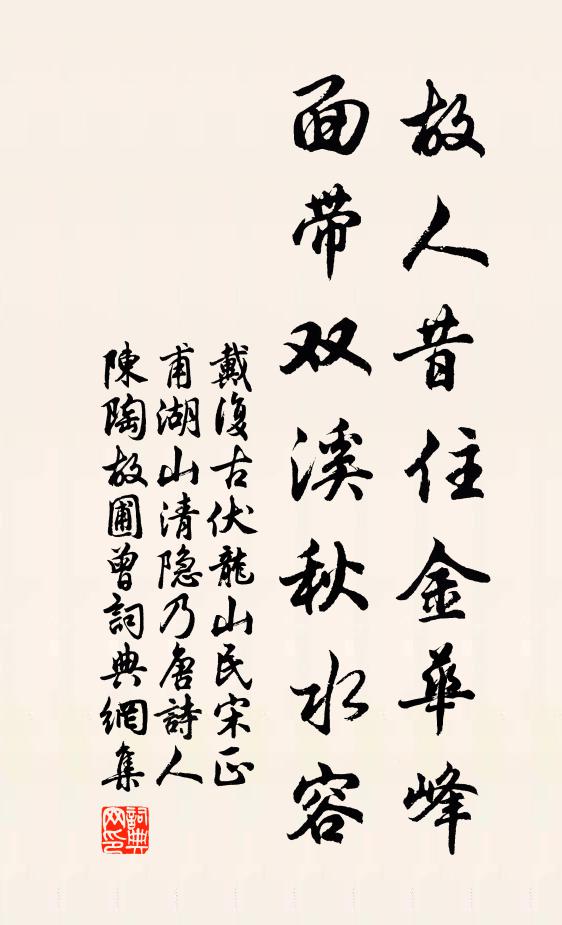 故人昔住金華峰
面带双溪秋水容
戴復古伏龍山民宋正
甫湖山清隐乃唐詩人
陳陶故圃曾詞典網集
詞典
网印